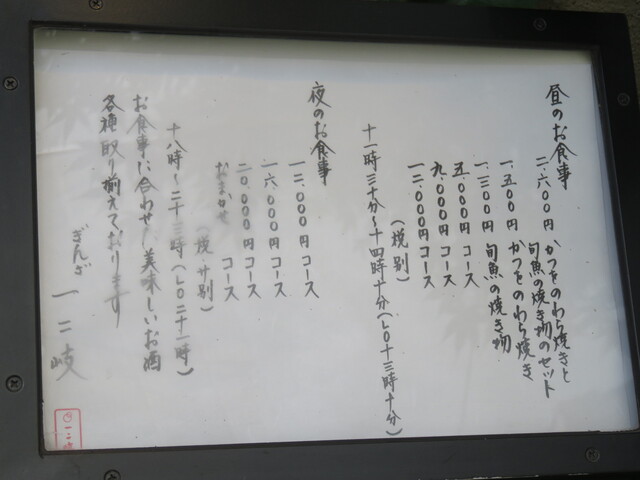 昼のお食事
二、六〇〇円 かつをのわら焼きと
旬魚の焼き物のセット
一、五〇〇円 かつをのわら焼き
一、三〇〇円 旬魚の焼き物
五、〇〇〇円 コース
九、〇〇〇円 コース
一二、〇〇〇円 コース
(税別)
十一時三十分〜十四時十分(LO十三時十分)
夜のお食事
一二、〇〇〇円 コース
一六、〇〇〇円 コース
二〇、〇〇〇円 コース
おまかせ
(税サ別)
十八時〜二十三時(LO二十一時)
お食事に合わせ美味しいお酒
各種取り揃えております
ぎんざ 一二岐